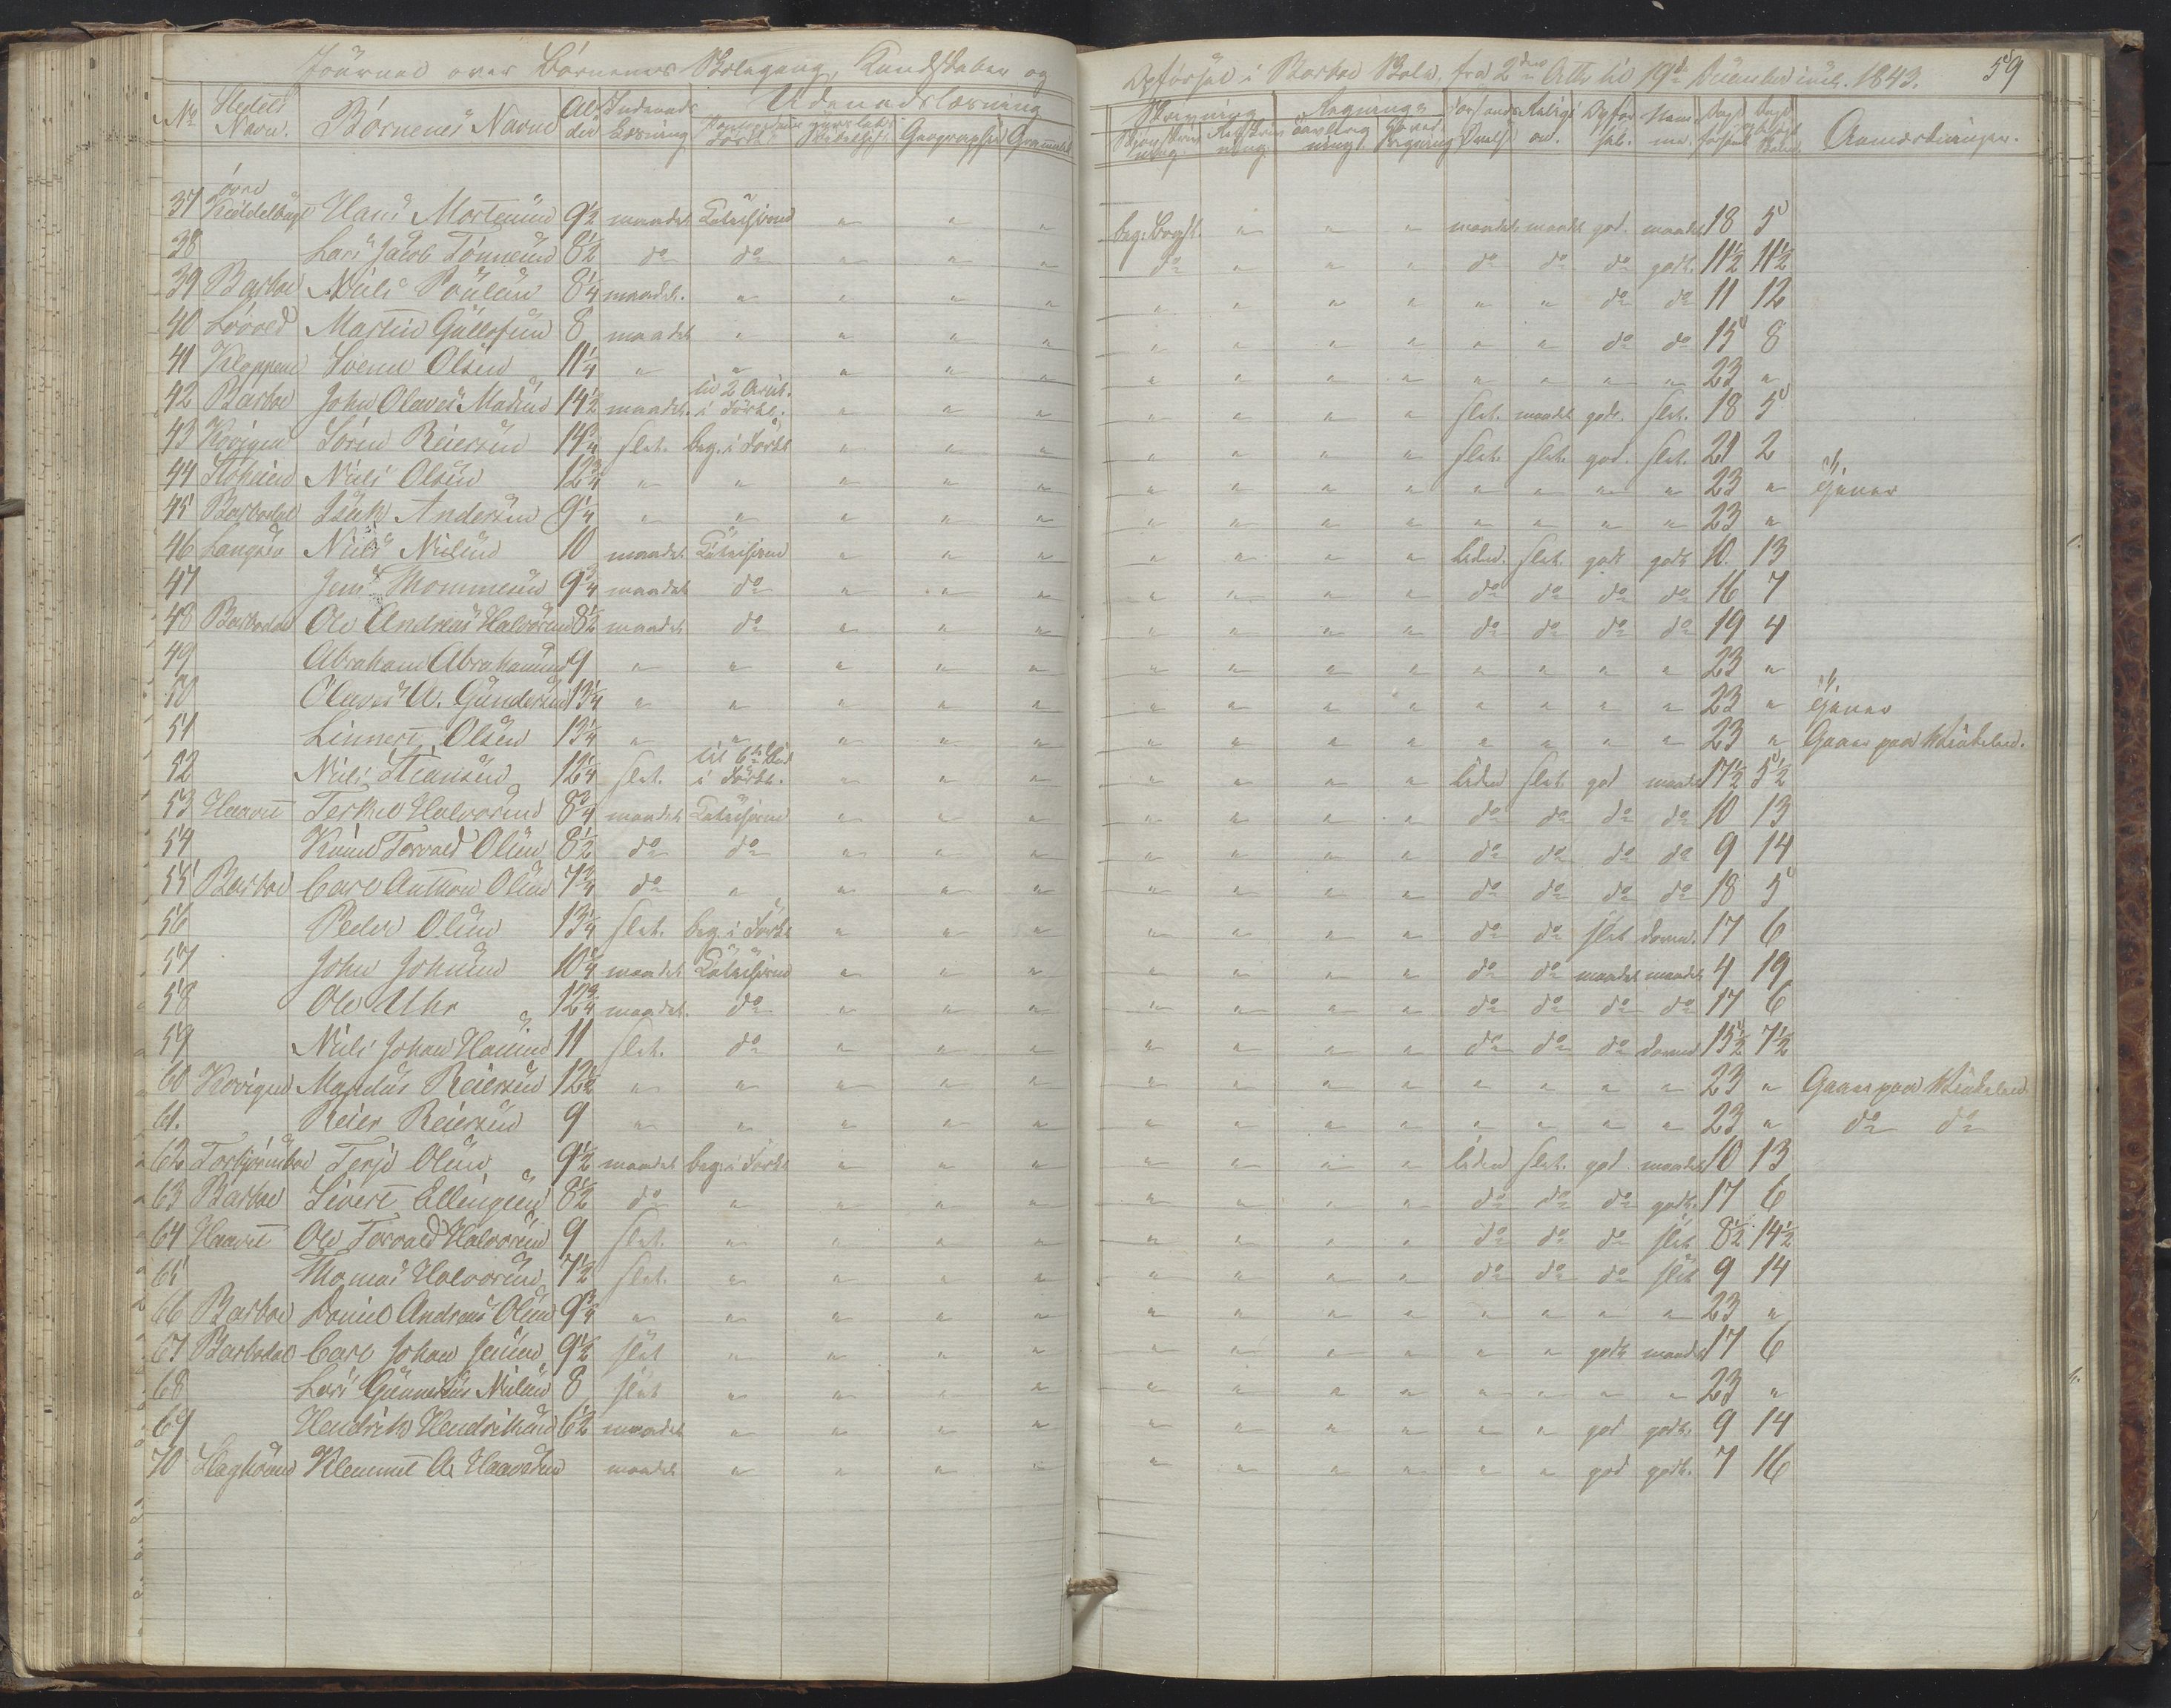 Journal over Börnenes Skolegang, Kundskaber og Opförsel i Barboe Skole, fra 2den Octbr til 19de December incl. 1843. 59
No Stedets Navn. Börnenes Navne Alder Indenads Læsning Udenadslæsning Geographie Grammatik Skrivning Regning Religion Opförsel Anmærkninger.
37 övre Hans Mortensen 9½ maadel. Catechismus " " " beg. Bogst. " " " maadel. maadel. god. maadel. 18 5
38 Lars Jacob Tönnesen 8½ do do " " " do " " " do do do godt. 11½ 11½
39 Barboe Niels Poulsen 8¼ maadel. " " " " " " " " " " do do 11 12
40 Martin Gullofsen 8 maadel. " " " " " " " " " " do do 15 8
41 Kloppene Svenn Olsen 11¼ " " " " " " " " " " " " " 23 "
42 Barboe John Olaves Madsen 14½ maadel. til 2 Artik. i Forkl. " " " " " " " slet. maadel. godt. slet. 18 5
43 Krøigen Sören Reiersen 14¾ slet. beg. i Forkl. " " " " " " " slet. slet. god. slet. 21 2
44 Niels Olsen 12¾ " " " " " " " " " " " " " 23 "
45 Barbodal Isack Andersen 9¼ " " " " " " " " " " " " " 23 "
46 Langsæ Niels Nielsen 10 maadel. Catechismus " " " " " " " liden. slet. godt godt 10. 13
47 Jens Mommesen 9¾ maadel. do " " " " " " " do do do do 16 7
48 Barbodal Ole Andreas Halvorsen 8½ maadel. do " " " " " " " do do do do 19 4
49 Abraham Abrahamsen 9 " " " " " " " " " " " " " 23 "
50 Olaves A. Gundersen 13¼ " " " " " " " " " " " " " 23 "
51 Linnert Olsen 13¼ " " " " " " " " " " " " " 23 " Gaaer paa Winkelen.
52 Niels Hansen 12¼ slet. til 6te Bud i Forkl. " " " " " " " liden slet. god maadel 17½ 5½
53 Haavet Terkel Halvorsen 8¾ maadel. Catechismus " " " " " " " do do do do 10 13
54 Knud Torvald Olsen 8½ do do " " " " " " " do do do do 9 14
55 Barboe Carl Anthon Olsen 7¾ do " " " " " " " " do do do do 18 5
56 Peder Olsen 13¼ slet. beg. i Forkl " " " " " " " do do slet doven. 17 6
57 John Johnsen 10¾ maadel. Catechismus " " " " " " " do do maadel maadel 4 19
58 Ole Uhr 12¾ maadel. do " " " " " " " do do do do 17 6
59 Niels Johan Hansen 11 slet. do " " " " " " " do do do doven 15½ 7½
60 Krøigen Mandus Reiersen 12½ " " " " " " " " " " " " " 23 " Gaaer paa Winkelen
61. Reier Reiersen 9 " " " " " " " " " " " " " 23 " do do
62 Torbjörnsboe Terje Olsen 9½ maadel beg. i Forkl " " " " " " " liden slet. god. maadel 10 13
63 Barboe Sivert Ellingsen 8½ do " " " " " " " " do do do godt. 17 6
64 Haavet Ole Torvald Halvorsen 9 slet. " " " " " " " " do do do slet 8½ 14½
65 Thomas Halvorsen 7½ slet. " " " " " " " " do do do slet 9 14
66 Barboe Daniel Andreas Olsen 9¾ " " " " " " " " " " " " " 23 "
67 Barbodal Carl Johan Jensen 9½ slet " " " " " " " " " " godt maadel 17 6
68 Lars Gunnerius Nielsen 8 slet " " " " " " " " " " " " 23 "
69 Hendrik Hendriksen 6½ maadel " " " " " " " " " " god godt. 9 14
70 Klemmet A. Haavorsen maadel " " " " " " " " " " god godt. 7 16